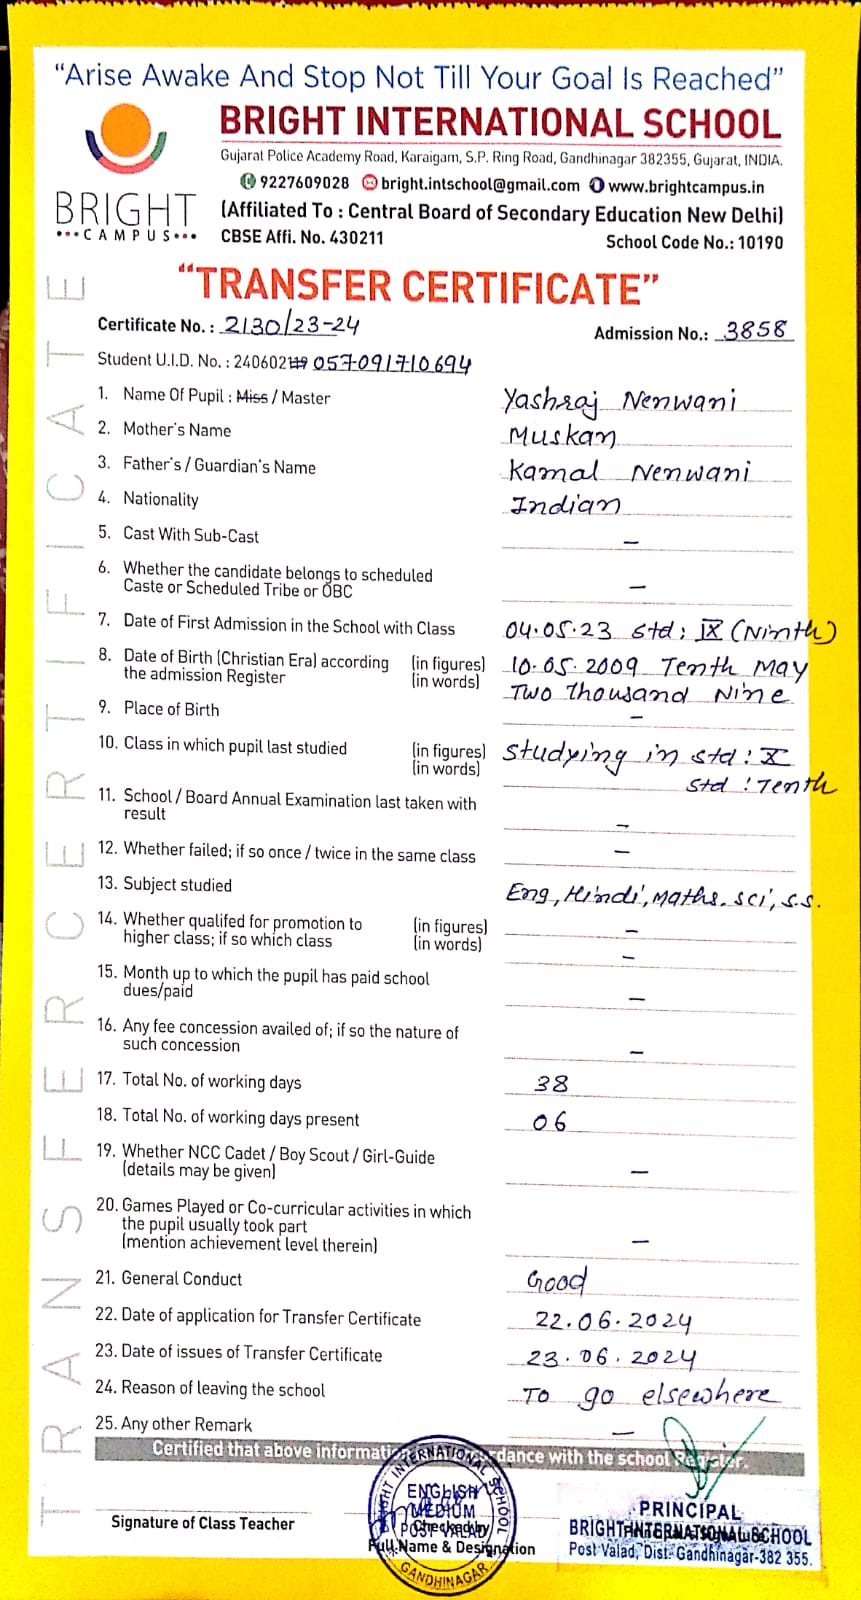 “Arise Awake And Stop Not Till Your Goal Is Reached”
BRIGHT INTERNATIONAL SCHOOL
Gujarat Police Academy Road, Karaigam, S.P. Ring Road, Gandhinagar 382355, Gujarat, INDIA.
9227609028 bright.intschool@gmail.com www.brightcampus.in
BRIGHT
•••CAMPUS•••
(Affiliated To : Central Board of Secondary Education New Delhi)
CBSE Affi. No. 430211 School Code No.: 10190
“TRANSFER CERTIFICATE”
TRANSFER CERTIFICATE
Certificate No. : 2130/23-24 Admission No.: 3858
Student U.I.D. No. : 240602 057091710694
1. Name Of Pupil : Miss / Master Yashraj Nenwani
2. Mother's Name Muskan
3. Father's / Guardian's Name Kamal Nenwani
4. Nationality Indian
5. Cast With Sub-Cast –
6. Whether the candidate belongs to scheduled
Caste or Scheduled Tribe or OBC –
7. Date of First Admission in the School with Class 04.05.23 Std: IX (Ninth)
8. Date of Birth (Christian Era) according (in figures) 10.05.2009 Tenth May
the admission Register (in words) Two Thousand Nine
9. Place of Birth –
10. Class in which pupil last studied (in figures) Studying in Std : X
(in words) Std : Tenth
11. School / Board Annual Examination last taken with
result –
12. Whether failed; if so once / twice in the same class –
13. Subject studied Eng, Hindi, Maths, Sci, S.S.
14. Whether qualifed for promotion to (in figures) –
higher class; if so which class (in words) –
15. Month up to which the pupil has paid school
dues/paid –
16. Any fee concession availed of; if so the nature of
such concession –
17. Total No. of working days 38
18. Total No. of working days present 06
19. Whether NCC Cadet / Boy Scout / Girl-Guide
(details may be given) –
20. Games Played or Co-curricular activities in which
the pupil usually took part
(mention achievement level therein) –
21. General Conduct Good
22. Date of application for Transfer Certificate 22.06.2024
23. Date of issues of Transfer Certificate 23.06.2024
24. Reason of leaving the school To go elsewhere
25. Any other Remark –
Certified that above informati dance with the school Register.
BRIGHT INTERNATIONAL SCHOOL
ENGLISH
MEDIUM
POST VALAD
GANDHINAGAR
Signature of Class Teacher
Checked by
Full Name & Designation
PRINCIPAL
BRIGHT INTERNATIONAL SCHOOL
Post Valad, Dist- Gandhinagar-382 355.